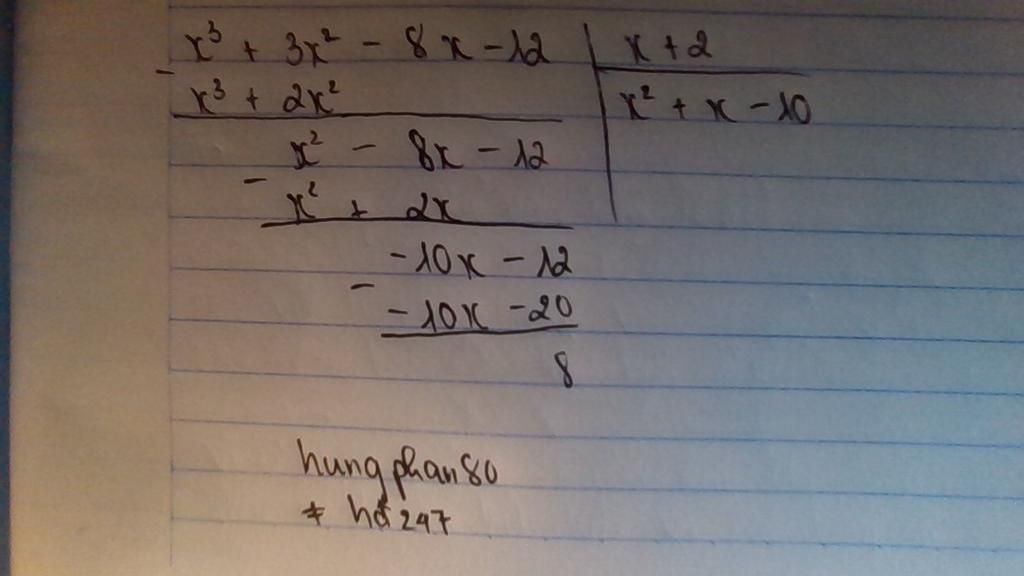 x³ + 3x² - 8x - 12 | x + 2
- x³ + 2x² | x² + x - 10
x² - 8x - 12
- x² + 2x
-10x - 12
- -10x - 20
8
hungphan80